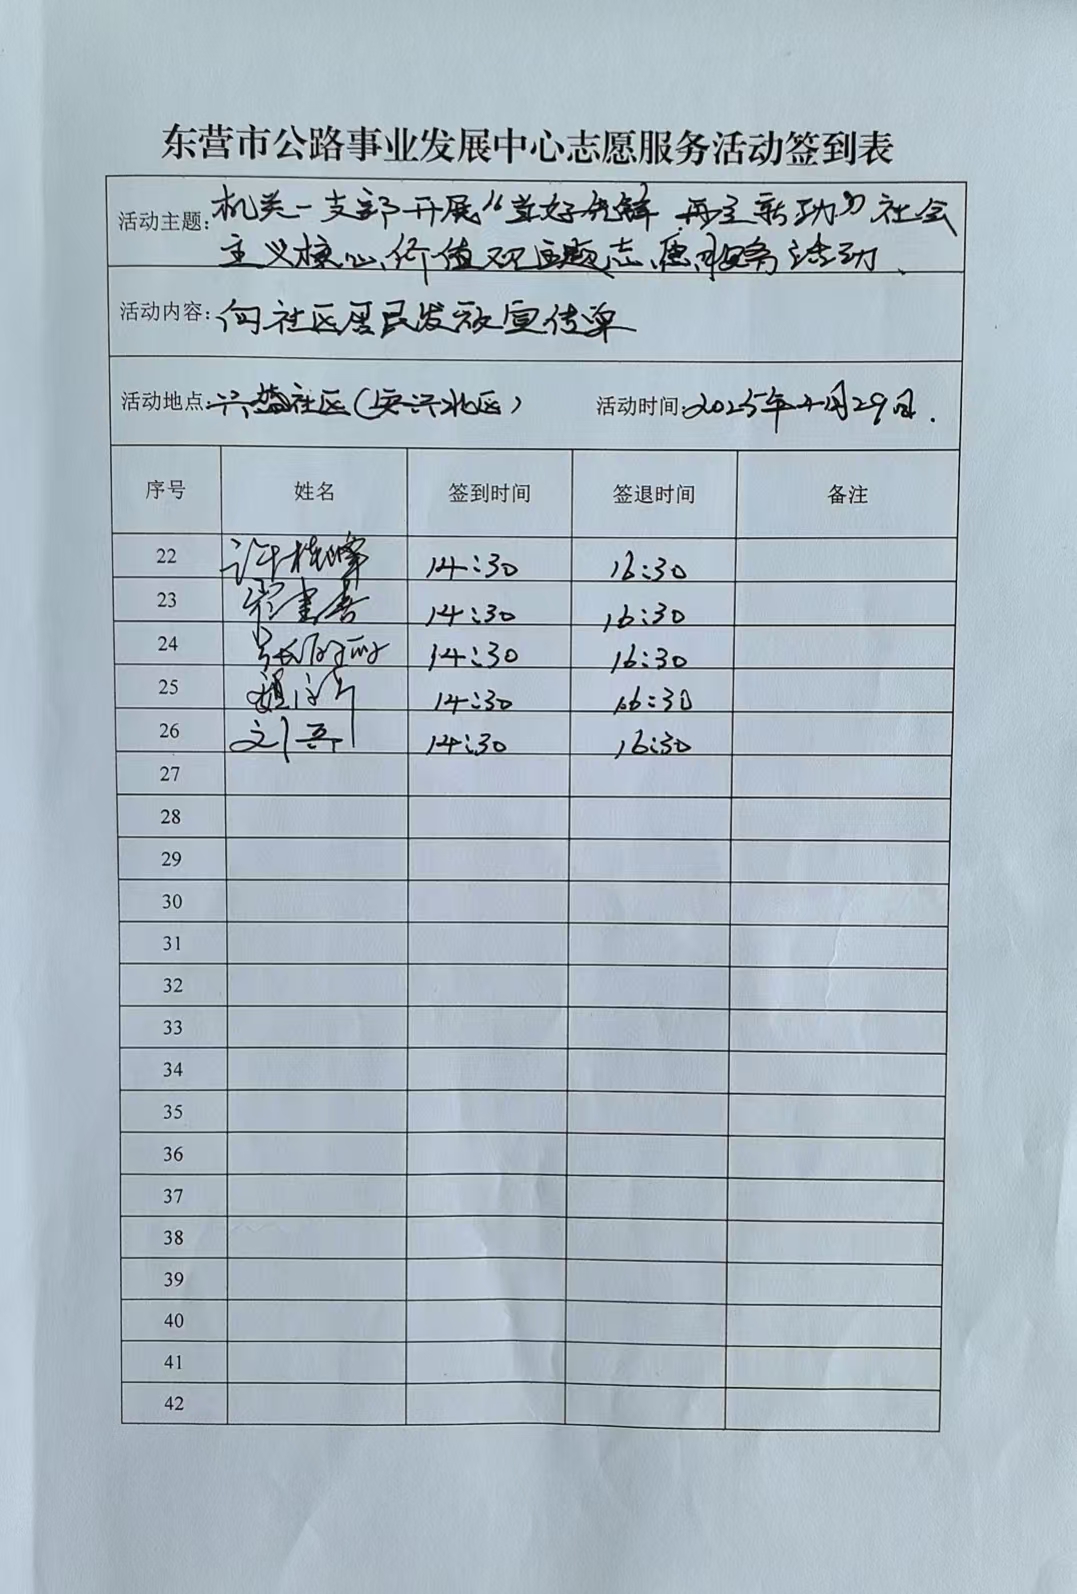 东营市公路事业发展中心志愿服务活动签到表
活动主题:机关一支部开展“当好先锋 再立新功”社会
主义核心价值观主题志愿服务活动.
活动内容:向社区居民发放宣传单
活动地点:社区(安兴北区) 活动时间:2025年 月29日.
序号 姓名 签到时间 签退时间 备注
22 许桂峰 14:30 16:30
23 14:30 16:30
24 14:30 16:30
25 14:30 16:30
26 刘 14:30 16:30
27
28
29
30
31
32
33
34
35
36
37
38
39
40
41
42